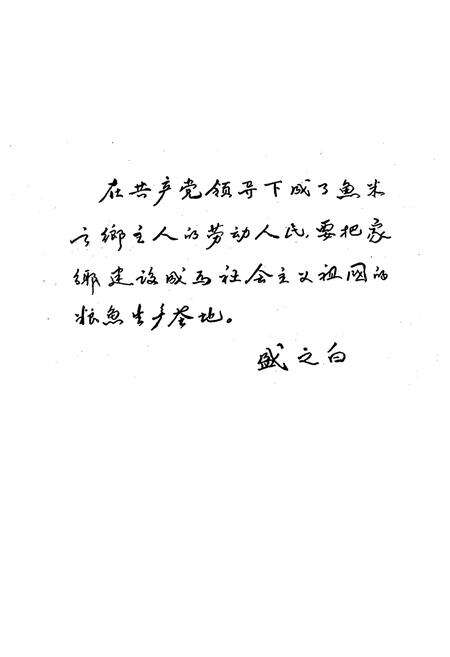 在共产党领导下成了魚米
之鄉主人的劳动人民,要把家
鄉建设成为社会主义祖國的
粮魚生产基地。
盛之白